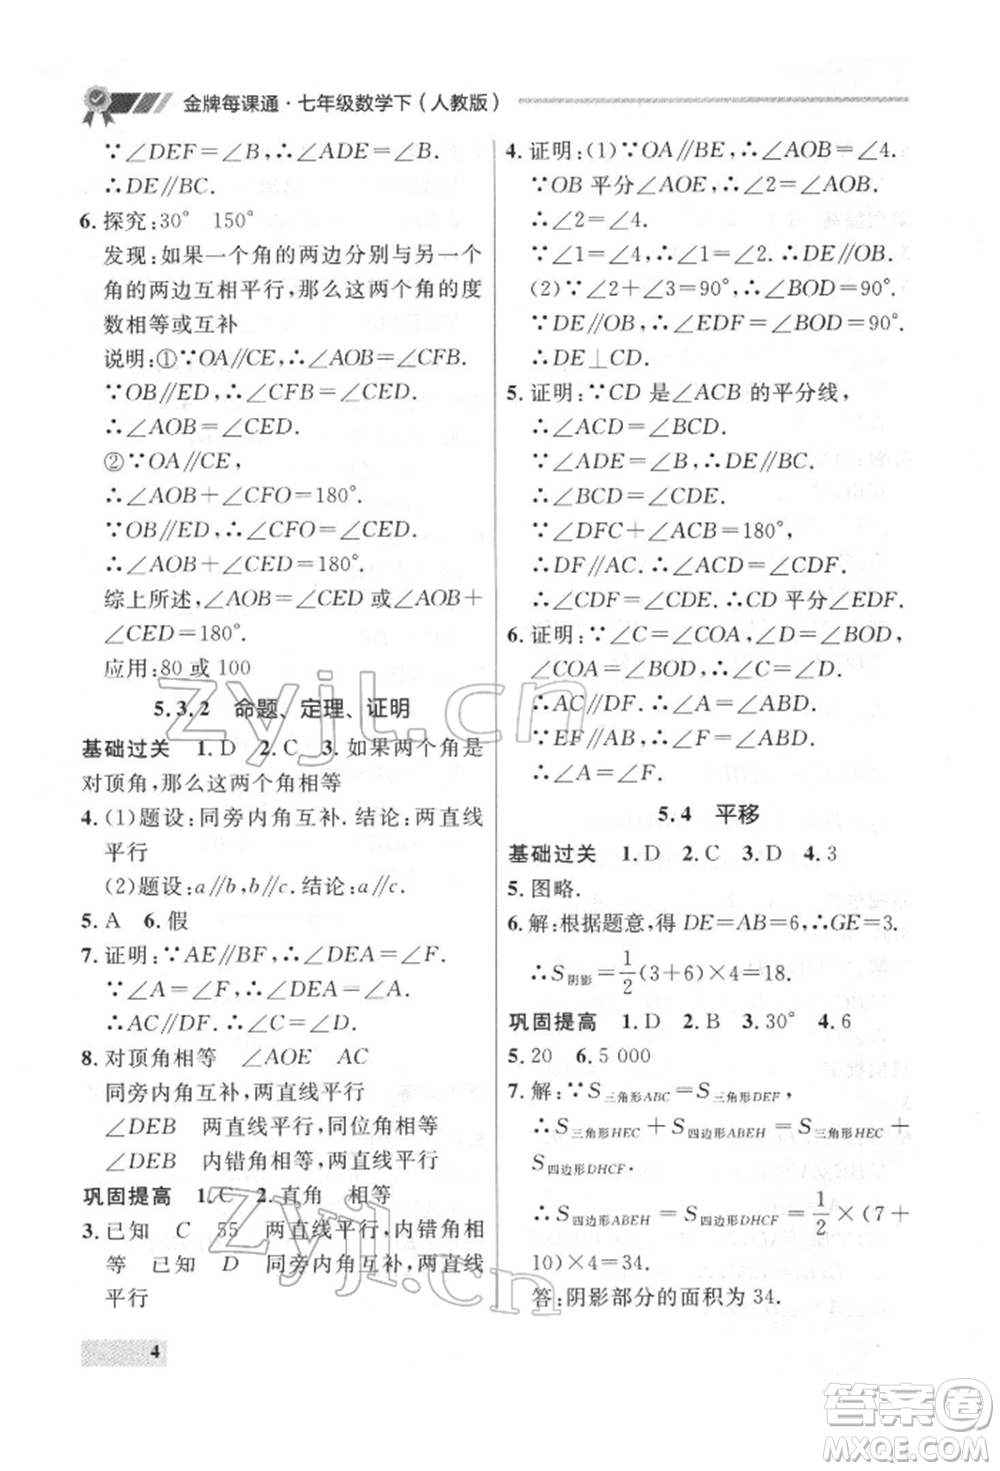 金牌每课通·七年级数学下（人教版）
∵∠DEF=∠B,∴∠ADE=∠B.
∴DE∥BC.
6. 探究:30° 150°
发现:如果一个角的两边分别与另一个
角的两边互相平行,那么这两个角的度
数相等或互补
说明:①∵OA∥CE,∴∠AOB=∠CFB.
∵OB∥ED,∴∠CFB=∠CED.
∴∠AOB=∠CED.
②∵OA∥CE,
∴∠AOB+∠CFO=180°.
∵OB∥ED,∴∠CFO=∠CED.
∴∠AOB+∠CED=180°.
综上所述,∠AOB=∠CED或∠AOB+
∠CED=180°.
应用:80或100
5.3.2 命题、定理、证明
基础过关 1.D 2.C 3.如果两个角是
对顶角,那么这两个角相等
4.(1)题设:同旁内角互补.结论:两直线
平行
(2)题设:a∥b,b∥c.结论:a∥c.
5. A 6. 假
7. 证明:∵AE∥BF,∴∠DEA=∠F.
∵∠A=∠F,∴∠DEA=∠A.
∴AC∥DF.∴∠C=∠D.
8. 对顶角相等 ∠AOE AC
同旁内角互补,两直线平行
∠DEB 两直线平行,同位角相等
∠DEB 内错角相等,两直线平行
巩固提高 1.C 2.直角 相等
3. 已知 C 55 两直线平行,内错角相
等 已知 D 同旁内角互补,两直线
平行
4
4. 证明:(1)∵OA∥BE,∴∠AOB=∠4.
∵OB平分∠AOE,∴∠2=∠AOB.
∴∠2=∠4.
∵∠1=∠4,∴∠1=∠2.∴DE∥OB.
(2)∵∠2+∠3=90°,∴∠BOD=90°.
∵DE∥OB,∴∠EDF=∠BOD=90°.
∴DE⊥CD.
5. 证明:∵CD是∠ACB的平分线,
∴∠ACD=∠BCD.
∵∠ADE=∠B,∴DE∥BC.
∴∠BCD=∠CDE.
∵∠DFC+∠ACB=180°,
∴DF∥AC.∴∠ACD=∠CDF.
∴∠CDF=∠CDE.∴CD平分∠EDF.
6. 证明:∵∠C=∠COA,∠D=∠BOD,
∠COA=∠BOD,∴∠C=∠D.
∴AC∥DF.∴∠A=∠FBA.
∵EF∥AB,∴∠F=∠FBA.
∴∠A=∠F.
5.4 平移
基础过关 1.D 2.C 3.D 4.3
5. 图略.
6. 解:根据题意,得DE=AB=6,∴GE=3.
∴S阴影=1/2(3+6)×4=18.
巩固提高 1.D 2.B 3.30° 4.6
5. 20 6. 5 000
7. 解:∵S三角形ABC=S三角形DEF,
∴S三角形HEC+S四边形ABEH=S三角形HEC+
S四边形DHCF.
∴S四边形ABEH=S四边形DHCF=1/2×(7+
10)×4=34.
答:阴影部分的面积为34.
zyjl.cn
zyjl.cn
答案圈
MXQE.COM